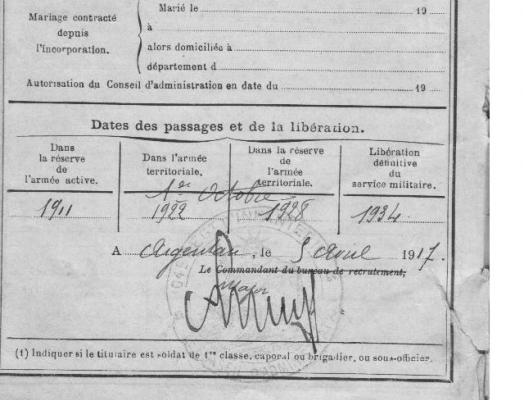 Mariage contracté
depuis
l'incorporation.
Marié le 19
à
alors domiciliée à
département d
Autorisation du Conseil d'administration en date du 19
Dates des passages et de la libération.
Dans
la réserve
de
l'armée active.
Dans l'armée
territoriale.
Dans la réserve
de
l'armée
territoriale.
Libération
définitive
du
service militaire.
1er Octobre
1911 1922 1928 1934
A Argentan, le 5 Avril 1917.
Le Commandant du bureau de recrutement,
Major
(1) Indiquer si le titulaire est soldat de 1re classe, caporal ou brigadier, ou sous-officier.